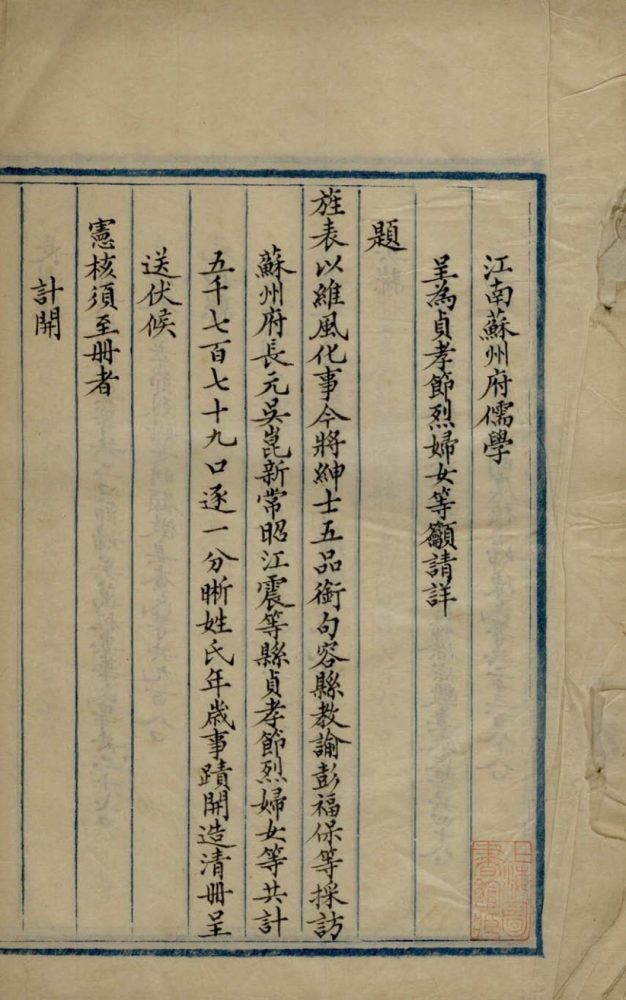 江南蘇州府儒學
呈為貞孝節烈婦女等籲請詳
題
旌表以維風化事今將紳士五品銜句容縣教諭彭福保等採訪
蘇州府長元吳崑新常昭江震等縣貞孝節烈婦女等共計
五千七百七十九口逐一分晰姓氏年歲事蹟開造清冊呈
送伏候
憲核須至冊者
計開
上海圖
書館藏